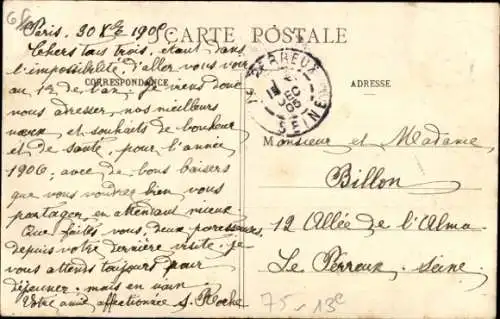 CARTE POSTALE
CORRESPONDANCE
ADRESSE
Paris, 30 Xbre 1905
Chers tous trois, étant dans
l'impossibilité d'aller vous voir
au 12 de l'av. Je viens donc
vous adresser, nos meilleurs
vœux et souhaits de bonheur
et de santé, pour l'année
1906; avec de bons baisers
que vous voudrez bien vous
partager, en attendant mieux
Que faites vous, deux paresseuses,
depuis votre dernière visite. Je
vous attends toujours pour
déjeuner, mais en vain.
Votre amie affectionnée S. Roche
LE PERREUX
DEC
05
SEINE
Monsieur et Madame
Billon
12 Allée de l'Alma
Le Perreux. Seine.
75 - 13e